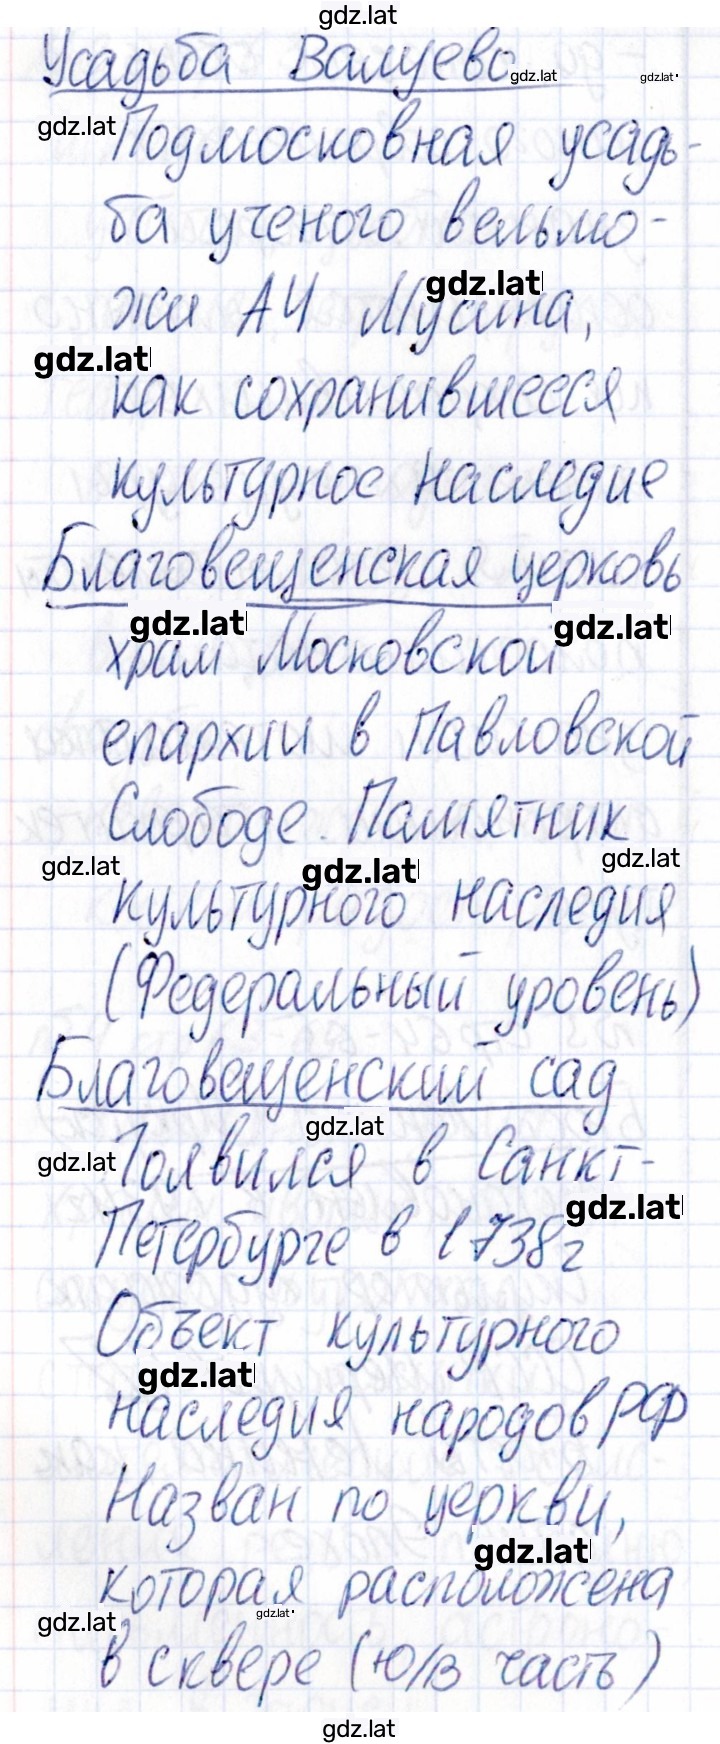 gdz.lat
Усадьба Валуево
gdz.lat gdz.lat
gdz.lat Подмосковная усадь-
ба ученого вельмо-
gdz.lat
жи АИ Мусина,
gdz.lat
как сохранившееся
культурное наследие
Благовещенская церковь
gdz.lat gdz.lat
храм Московской
епархии в Павловской
Слободе. Памятник
gdz.lat gdz.lat gdz.lat
культурного наследия
(Федеральный уровень)
Благовещенский сад
gdz.lat
gdz.lat Появился в Санкт-
gdz.lat
Петербурге в 1738г
Объект культурного
gdz.lat
наследия народов РФ
Назван по церкви,
gdz.lat
которая расположена
gdz.lat gdz.lat
в сквере (Ю/В часть)
gdz.lat